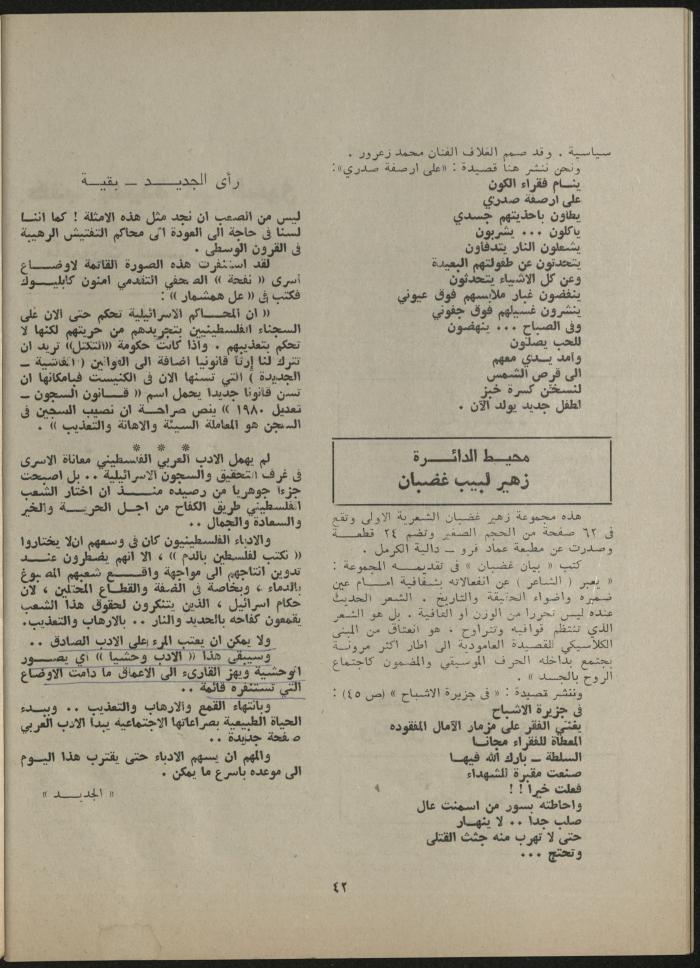 سياسية . وقد صمم الغلاف الفنان محمد زعرور .
ونحن ننشر هنا قصيدة : «على ارصفة صدري»:
ينـام فقراء الكون
على ارصفة صدري
يطأون باحذيتهم جسدي
ياكلون ... يشربون
يشعلون النار يتدفأون
يتحدثون عن طفولتهم البعيدة
وعن كل الاشياء يتحدثون
ينفضون غبار ملابسهم فوق عيوني
ينشرون غسيلهم فوق جفوني
وفى الصباح ... ينهضون
للحب يصلون
وامد يـدي معهم
الى قرص الشمس
لنسخن كسرة خبز
لطفل جديد يولد الآن .
محيـط الدائـــرة
زهير لبيب غضبان
هذه مجموعة زهير غضبان الشعرية الاولى وتقع
فى ٦٢ صفحة من الحجم الصغير وتضم ٢٤ قطعـــة
وصدرت عن مطبعة عماد فرو ــ دالية الكرمل .
كتب « بيان غضبان » فى تقديمـــه المجموعة :
« يعبر ( الشاعر ) عن انفعالاته بشفافية امـــام عين
ضميره واضواء الحقيقة والتاريخ . الشعر الحديث
عنده ليس تحررا من الوزن او القافية . بل هو الشعر
الذي تنتظم قوافيه وتتراوح ، هو انعتاق من المبنى
الكلاسيكي القصيدة العامودية الى اطار اكثر مرونـــة
يجتمع بداخله الحرف الموسيقي والمضمون كاجتماع
الروح بالجسد » .
وننشر قصيدة : « فى جزيرة الاشباح » (ص ٤٥) :
فى جزيرة الاشباح
يغني الفقر على مزمار الآمال المفقوده
المعطاة للفقراء مجانـا
السلطة ــ بارك الله فيهـا
صنعت مقبرة للشهداء
فعلت خيرا ! !
واحاطته بسور من اسمنت عال
صلب جدا .. لا ينهـار
حتى لا تهرب منه جثث القتلى
وتحتج ...
رأى الجديـــد ــ بقيـة
ليس من الصعب ان نجد مثل هذه الامثلة ! كما اننـا
لسنا فى حاجة الى العودة الى محاكم التفتيش الرهيبة
فى القرون الوسطى .
لقد استنفرت هذه الصورة القاتمة لاوضـــاع
أسرى « نفحة » الصحفي التقدمي امنون كابليـــوك
فكتب فى « عل همشمار » :
« ان المحـــاكم الاسرائيلية تحكم حتى الان على
السجناء الفلسطينيين بتجريدهم من حريتهم لكنها لا
تحكم بتعذيبهم . واذا كانت حكومة «التكتل» تريد ان
تترك لنا إرثا قانونيا اضافة الى القوانين ( الفاشية ــ
الجديدة ) التي تسنها الان فى الكنيست فبامكانها ان
تسن قانونا جديدا يحمل اسم « قـــانون السجون ــ
تعديل ١٩٨٠ » ينص صراحـــة ان نصيب السجين فى
السجن هو المعاملة السيئة والاهانة والتعذيب » .
* * *
لم يهمل الادب العربي الفلسطيني معاناة الاسرى
فى غرف التحقيق والسجون الاسرائيلية .. بل اصبحت
جزءا جوهريا من رصيده منـــذ ان اختار الشعب
الفلسطيني طريق الكفاح من اجـل الحريـــة والخير
والسعادة والجمال ..
والادباء الفلسطينيون كان فى وسعهم ان لا يختاروا
« نكتب لفلسطين بالدم » ، الا انهم يضطرون عنـــد
تدوين انتاجهم الى مواجهة واقـــع شعبهم المصبوغ
بالدماء ، وبخاصة فى الضفة والقطـاع المحتلين ، لان
حكام اسرائيل ، الذين يتنكرون لحقوق هذا الشعب
يقمعون كفاحه بالحديد والنار .. بالارهاب والتعذيب.
ولا يمكن ان يعتب المرء على الادب الصادق ..
وسيبقى هذا « الادب وحشيا » اي يصـــور
الوحشية ويهز القارىء الى الاعماق ما دامت الاوضاع
التي تستنفره قائمة ..
وبانتهاء القمع والارهاب والتعذيب .. وبـــدء
الحياة الطبيعية بصراعاتها الاجتماعيه يبدأ الادب العربي
صفحة جديدة ..
والمهم ان يسهم الادباء حتى يقترب هذا اليـــوم
الى موعده باسرع ما يمكن .
« الجديـد »
٤٢